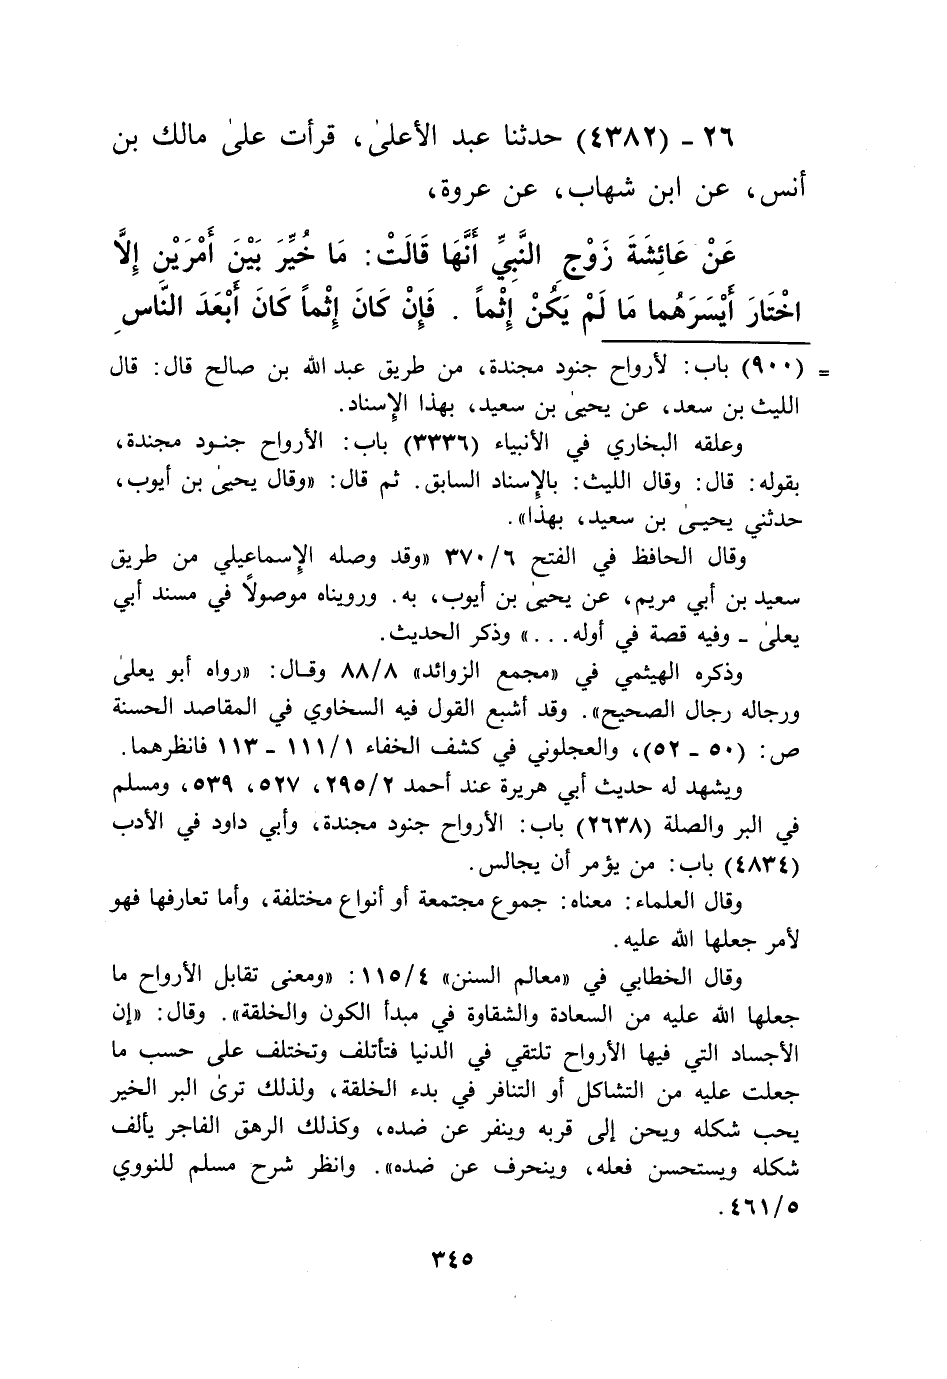 ٢٦ - (٤٣٨٢) حدثنا عبد الأعلىٰ، قرأت علىٰ مالك بن
أنس، عن ابن شهاب، عن عروة،
عَنْ عَائِشَةَ زَوْجِ النَّبِيِّ أَنَّهَا قَالَتْ: مَا خُيِّرَ بَيْنَ أَمْرَيْنِ إِلَّا
اخْتَارَ أَيْسَرَهُما مَا لَمْ يَكُنْ إِثْماً . فَإِنْ كَانَ إِثْماً كَانَ أَبْعَدَ النَّاسِ
= (٩٠٠) باب: لأرواح جنود مجندة، من طريق عبد الله بن صالح قال: قال
الليث بن سعد، عن يحيىٰ بن سعيد، بهذا الإسناد.
وعلقه البخاري في الأنبياء (٣٣٣٦) باب: الأرواح جنود مجندة،
بقوله: قال: وقال الليث: بالإسناد السابق. ثم قال: «وقال يحيىٰ بن أيوب،
حدثني يحيىٰ بن سعيد، بهذا».
وقال الحافظ في الفتح ٣٧٠/٦ «وقد وصله الإسماعيلي من طريق
سعيد بن أبي مريم، عن يحيىٰ بن أيوب، به. ورويناه موصولاً في مسند أبي
يعلىٰ - وفيه قصة في أوله...» وذكر الحديث.
وذكره الهيثمي في «مجمع الزوائد» ٨٨/٨ وقال: «رواه أبو يعلىٰ
ورجاله رجال الصحيح». وقد أشبع القول فيه السخاوي في المقاصد الحسنة
ص: (٥٠ - ٥٢)، والعجلوني في كشف الخفاء ١١١/١ - ١١٣ فانظرهما.
ويشهد له حديث أبي هريرة عند أحمد ٢٩٥/٢، ٥٢٧، ٥٣٩، ومسلم
في البر والصلة (٢٦٣٨) باب: الأرواح جنود مجندة، وأبي داود في الأدب
(٤٨٣٤) باب: من يؤمر أن يجالس.
وقال العلماء: معناه: جموع مجتمعة أو أنواع مختلفة، وأما تعارفها فهو
لأمر جعلها الله عليه.
وقال الخطابي في «معالم السنن» ١١٥/٤: «ومعنى تقابل الأرواح ما
جعلها الله عليه من السعادة والشقاوة في مبدأ الكون والخلقة». وقال: «إن
الأجساد التي فيها الأرواح تلتقي في الدنيا فتأتلف وتختلف على حسب ما
جعلت عليه من التشاكل أو التنافر في بدء الخلقة، ولذلك ترىٰ البر الخير
يحب شكله ويحن إلى قربه وينفر عن ضده، وكذلك الرهق الفاجر يألف
شكله ويستحسن فعله، وينحرف عن ضده». وانظر شرح مسلم للنووي
٤٦١/٥.
٣٤٥